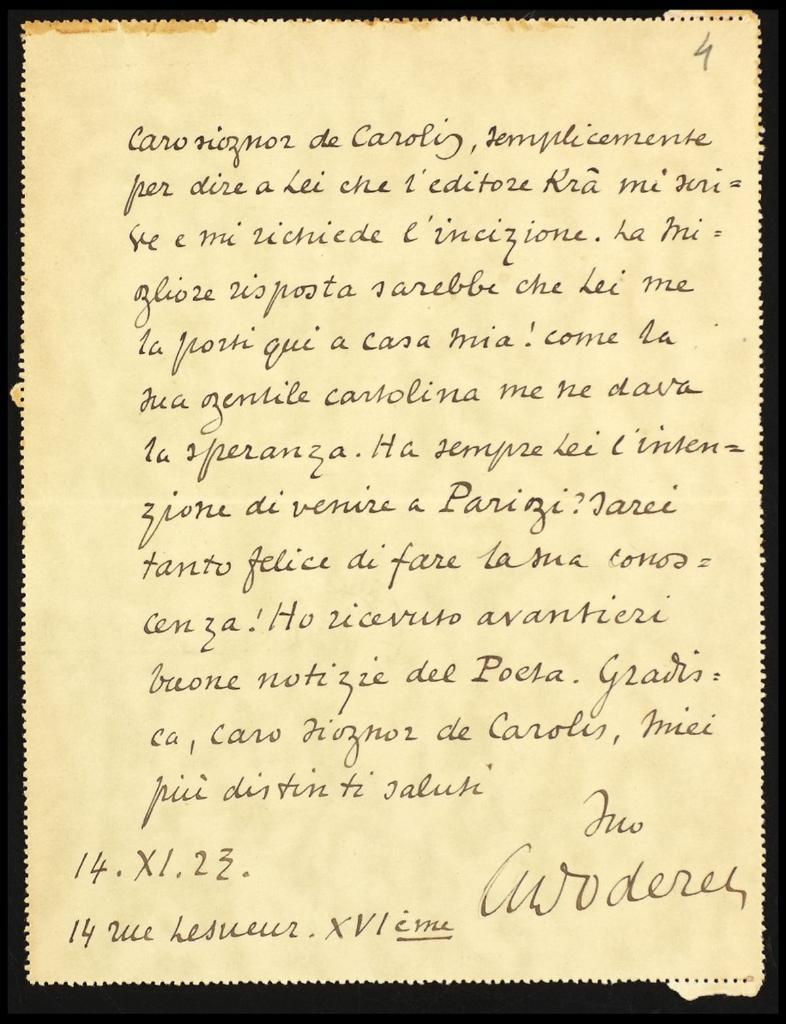 4
Caro signor de Carolis, semplicemente
per dire a Lei che l'editore Krâ mi scri=
ve e mi richiede l'incizione. La Mi=
gliore risposta sarebbe che Lei me
la porti qui a casa mia! come la
sua gentile cartolina me ne dava
la speranza. Ha sempre Lei l'inten=
zione di venire a Parigi? Sarei
tanto felice di fare la sua conos=
cenza! Ho ricevuto avantieri
buone notizie del Poeta. Gradis=
ca, caro Signor de Carolis, Miei
più distinti saluti
Suo
14.XI.23.
14 rue Lesueur. XVIème